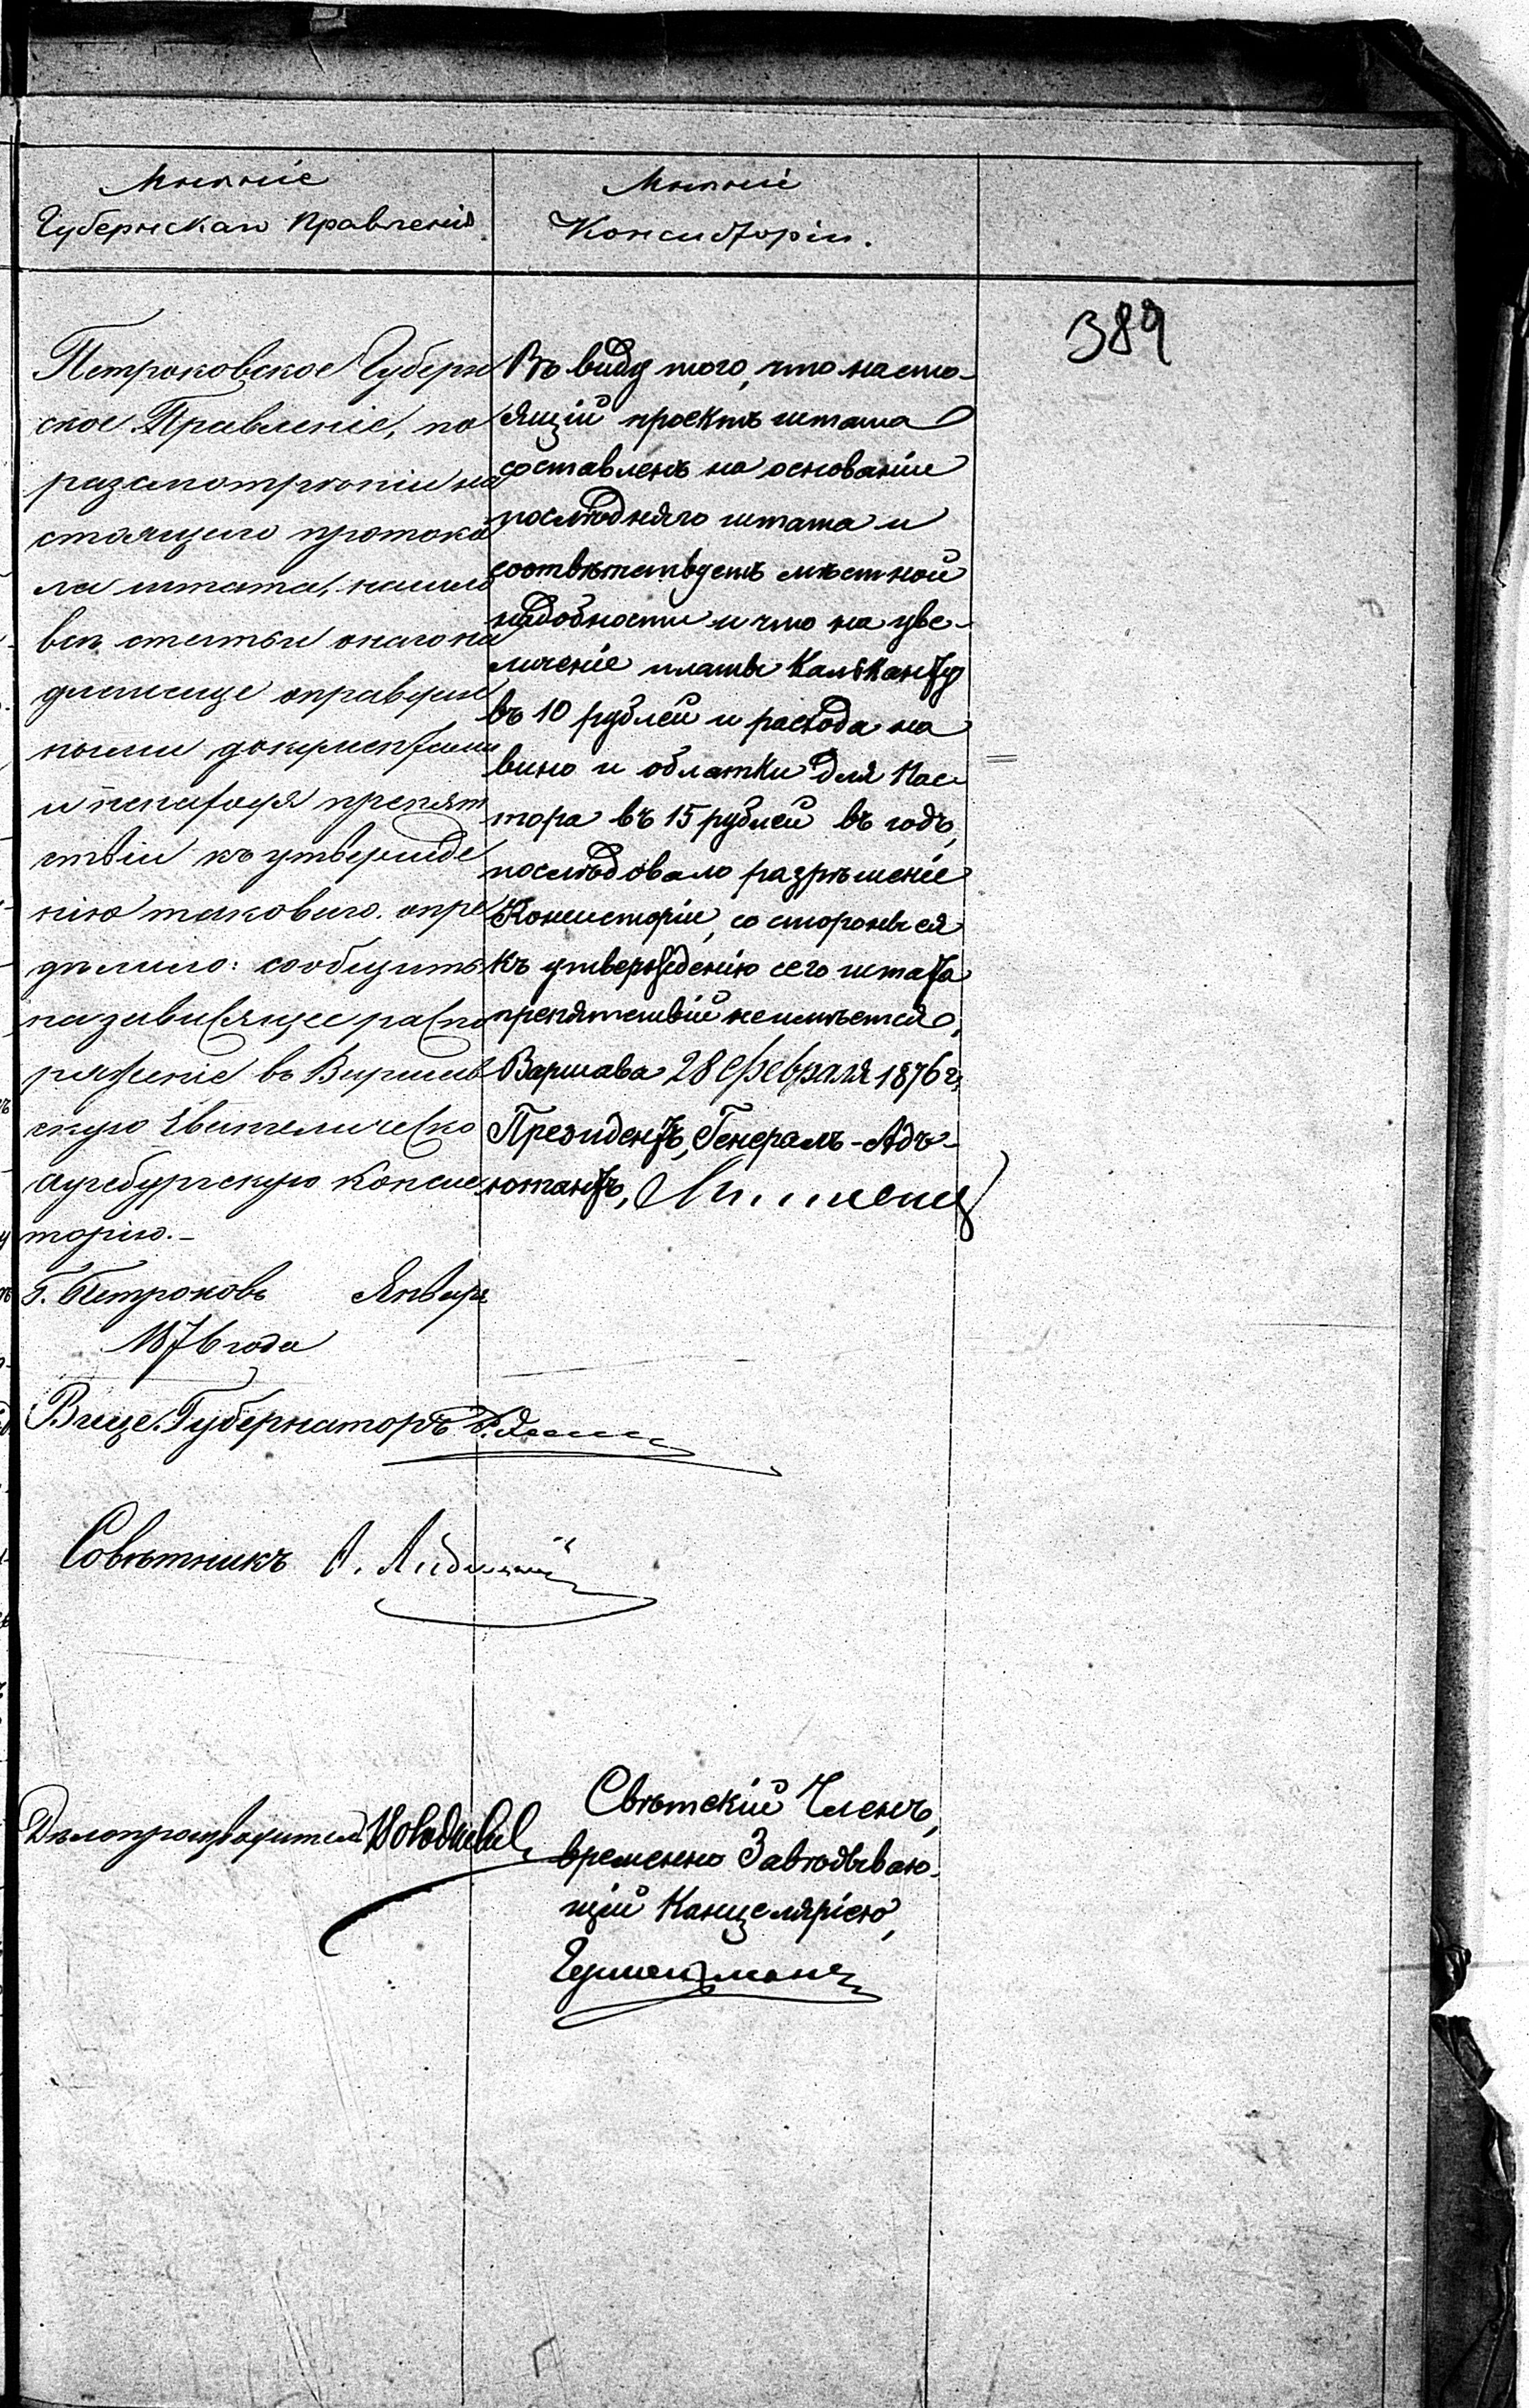 Мнѣніе
Губернскаго Правленія.
Петроковское Губерн
ское Правленіе, по
разсмотрѣніи на
стоящаго протоко
ла штата, нашло
всѣ статьи онаго на
длежаще оправдан
ными документами
и ненаходя препят
ствій къ утвержде
нію таковаго, опре
дѣлило: сообщить
на зависящее распо
ряженіе въ Варшав
скую Евангелическо
Аугсбургскую Консис
торію.-
Г. Петроковъ Январ
1876 года
Вице-Губернаторъ
Совѣтникъ А.
Дѣлопроизводитель
Мнѣніе
Консисторіи.
Въ виду того, что насто-
ящій проектъ штата
составленъ на основаніи
послѣдняго штата и
соотвѣтствуетъ мѣстной
надобности и что на уве-
личеніе платы Кальканту
въ 10 рублей и расхода на
вино и облатки для Пас-
тора въ 15 рублей въ годъ,
послѣдовало разрѣшеніе
Консисторіи, со стороны ея
къ утвержденію сего штата
препятствій неимѣется,
Варшава 28 Февраля 1876 г,
Президентъ, Генералъ-Адъ-
ютантъ,
Свѣтскій Членъ,
временно Завѣдываю-
щій Канцеляріею,
389